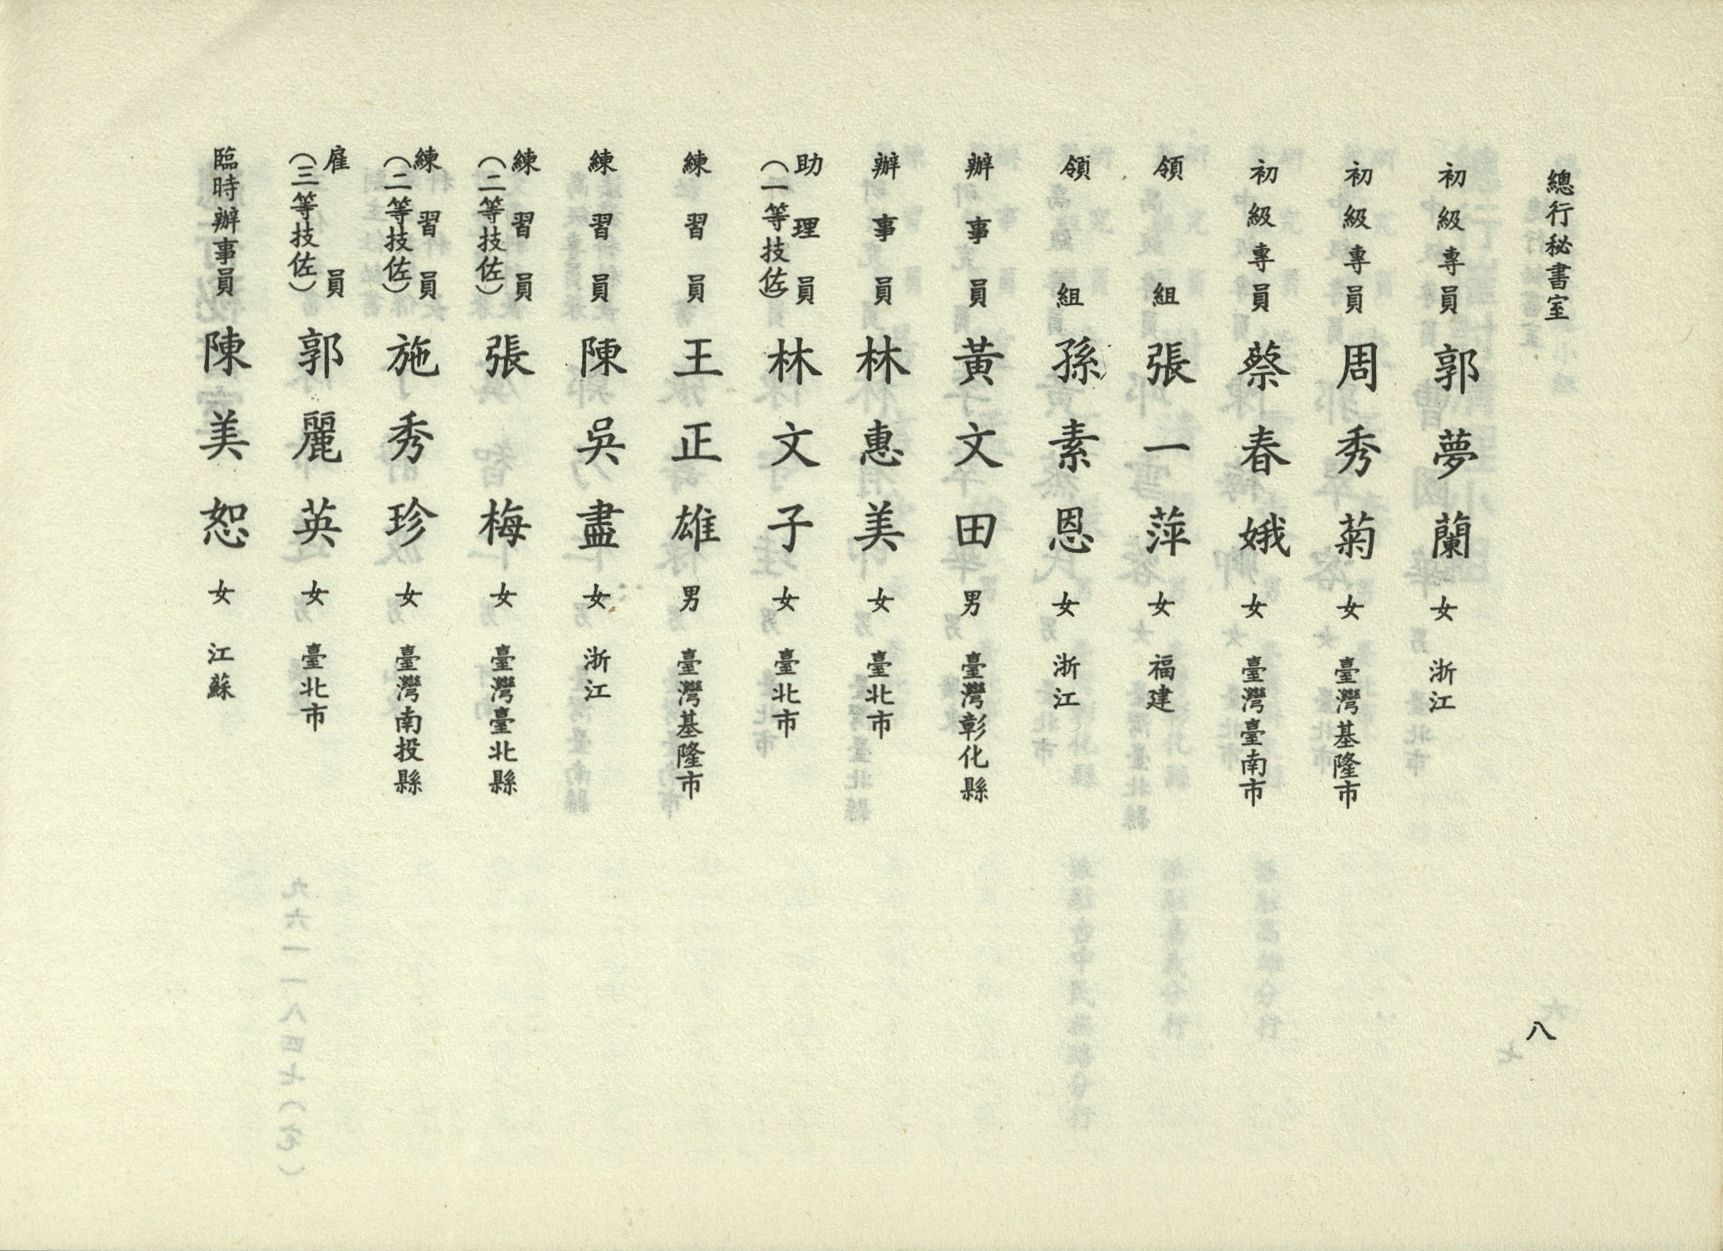 總行秘書室
八
初級專員 郭夢蘭 女 浙江
初級專員 周秀菊 女 臺灣基隆市
初級專員 蔡春娥 女 臺灣臺南市
領組 張一萍 女 福建
領組 孫素恩 女 浙江
辦事員 黃文田 男 臺灣彰化縣
辦事員 林惠美 女 臺北市
助理員(一等技佐) 林文子 女 臺北市
練習員 王正雄 男 臺灣基隆市
練習員 陳吳盡 女 浙江
練習員(二等技佐) 張梅 女 臺灣臺北縣
練習員(二等技佐) 施秀珍 女 臺灣南投縣
雇員(三等技佐) 郭麗英 女 臺北市
臨時辦事員 陳美恕 女 江蘇